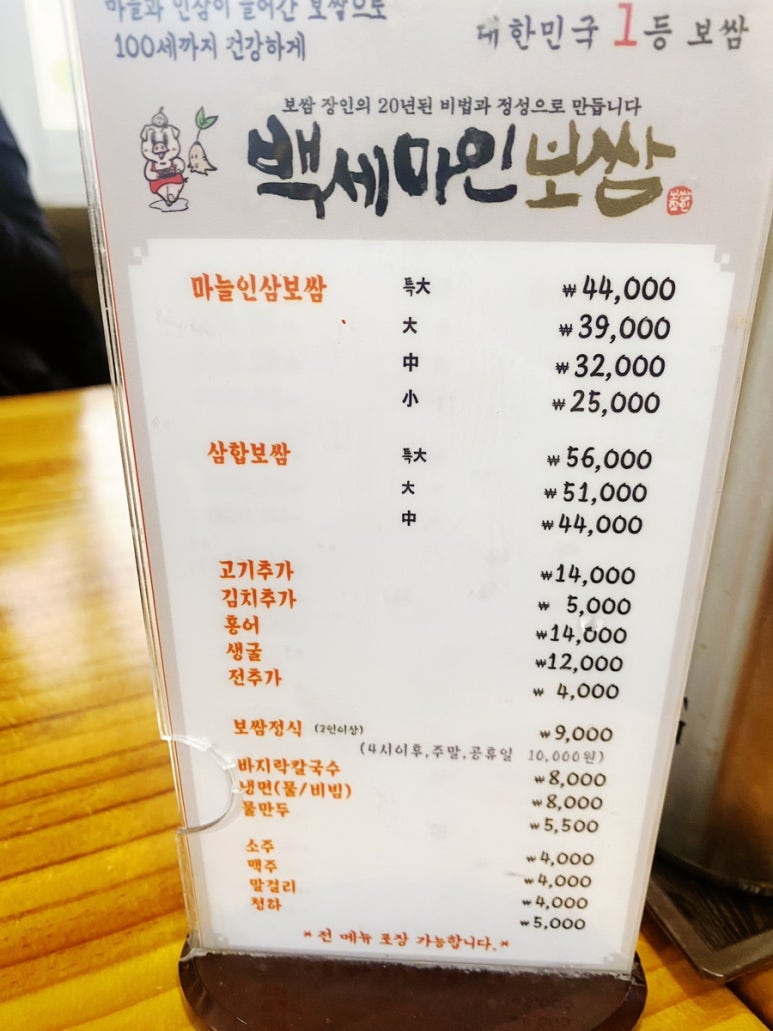 마늘과 인삼이 들어간 보쌈으로
100세까지 건강하게
대한민국 1등 보쌈
보쌈 장인의 20년된 비법과 정성으로 만듭니다
백세마인보쌈
마늘인삼보쌈 特大 ₩44,000
大 ₩39,000
中 ₩32,000
小 ₩25,000
삼합보쌈 특大 ₩56,000
大 ₩51,000
中 ₩44,000
고기추가 ₩14,000
김치추가 ₩ 5,000
홍어 ₩14,000
생굴 ₩12,000
전추가 ₩ 4,000
보쌈정식 (2인이상) ₩9,000
(4시이후,주말,공휴일 10,000원)
바지락칼국수 ₩8,000
냉면(물/비빔) ₩8,000
물만두 ₩5,500
소주 ₩4,000
맥주 ₩4,000
말걸리 ₩4,000
청하 ₩5,000
* 전 메뉴 포장 가능합니다.*